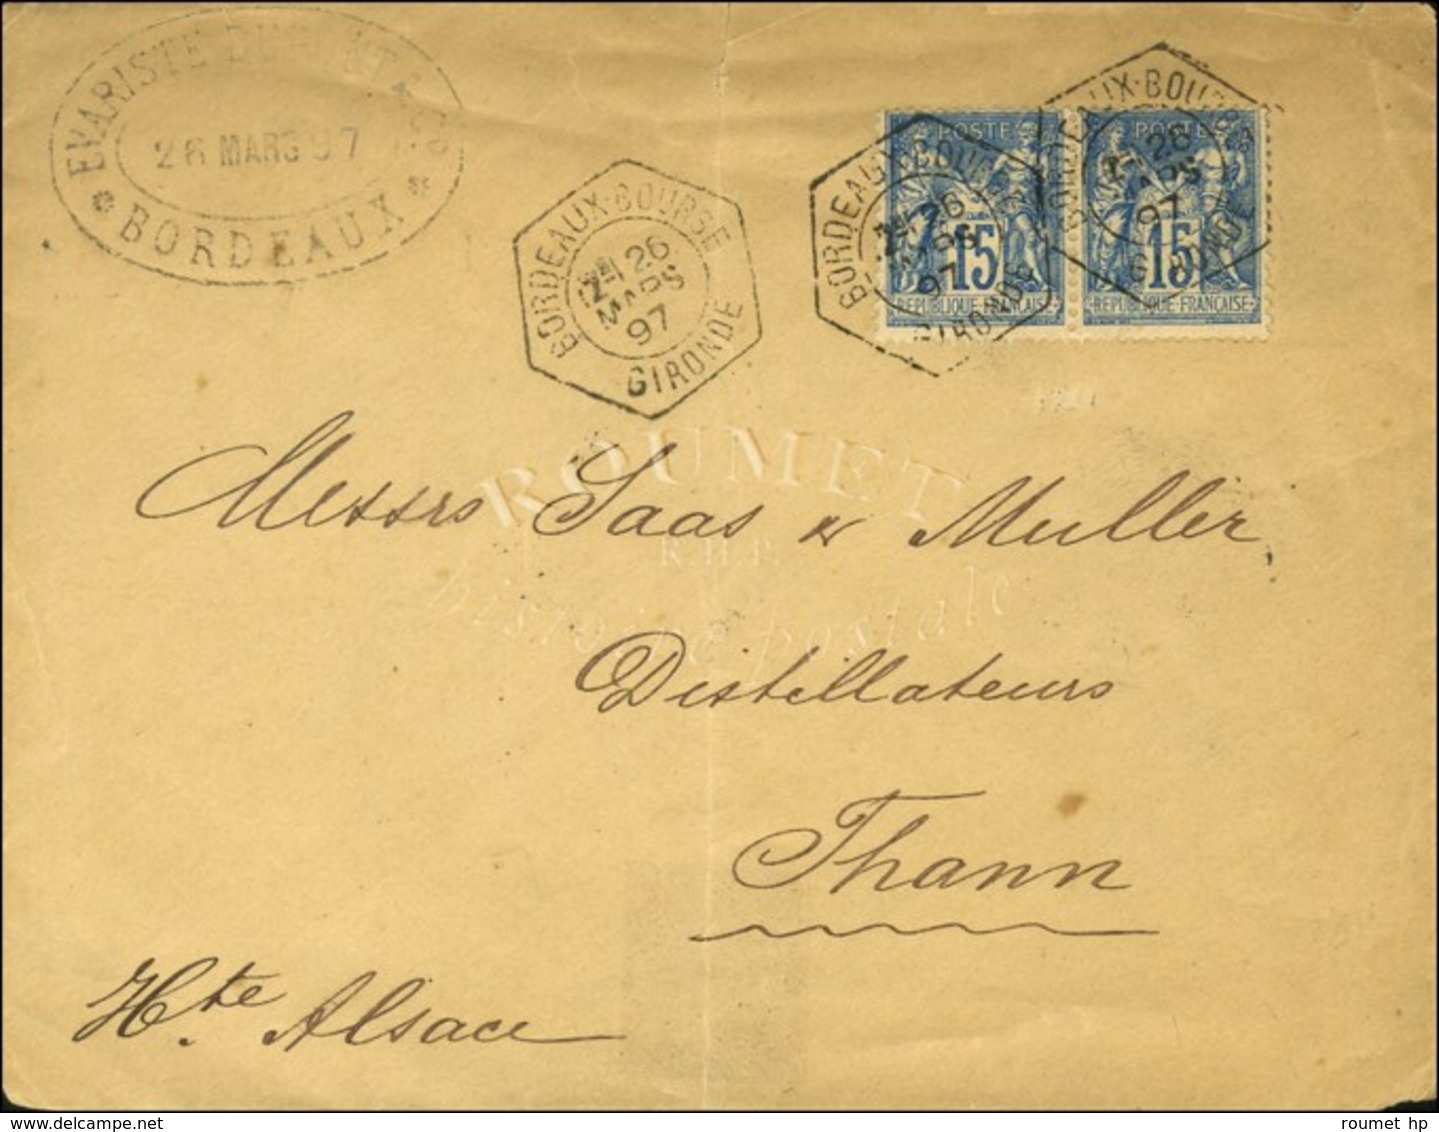 EVARISTE & Co
26 MARS 97
BORDEAUX
BORDEAUX-BOURSE
26
MARS
97
GIRONDE
BORDEAUX-BOURSE
26
MARS
97
GIRONDE
BORDEAUX-BOURSE
26
MARS
97
GIRONDE
POSTE
15
REPUBLIQUE-FRANCAISE
POSTE
15
REPUBLIQUE-FRANCAISE
ROUMET
R.H.P.
histoire postale
Messrs Saas & Muller
Distillateurs
Thann
Hte Alsace
roumet hp